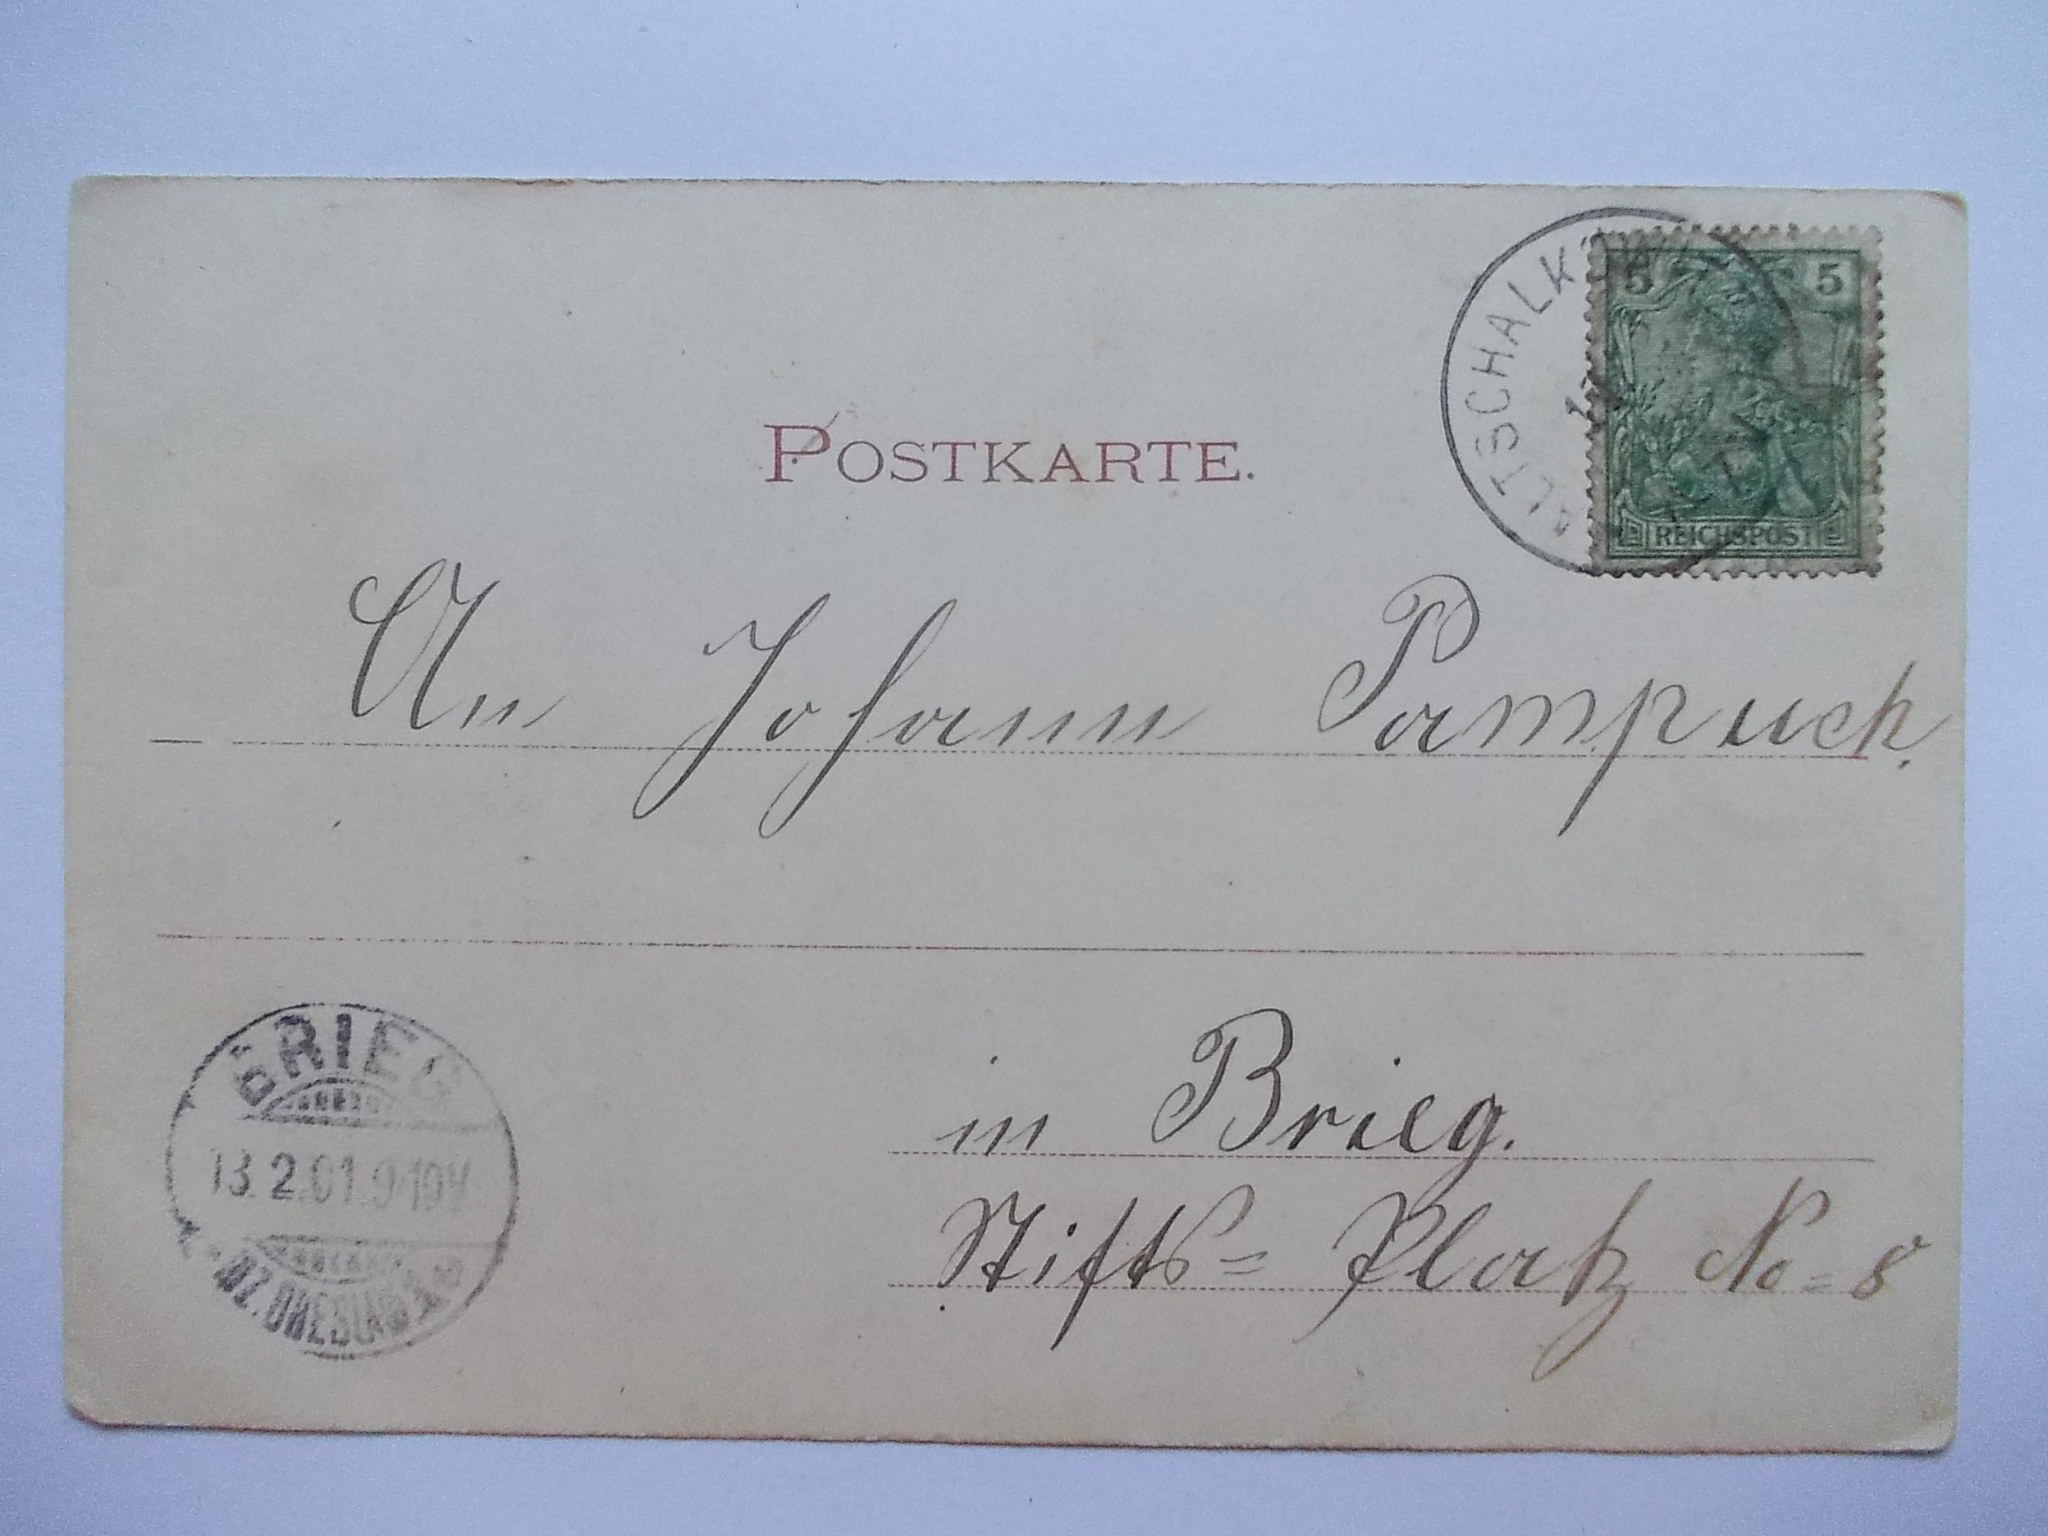 5 5
ALTSCHALK
REICHSPOST
POSTKARTE.
An Johann Pampuch.
in Brieg.
Stifts= Platz No=8
BRIEG
13.2.01.9-10V
BZ. BRESLAU